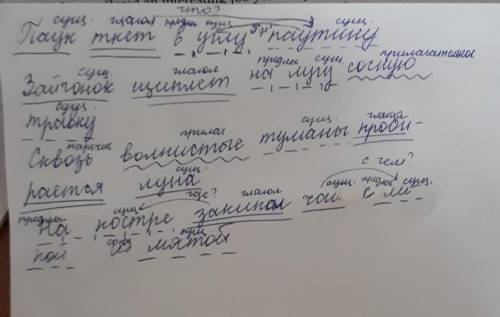 что?
сущ. глагол предлог сущ. сущ.
Паук ткет в углу паутину
сущ. глагол предлог сущ. прилагательное
Зайчонок щиплет на лугу сочную
сущ.
травку
прилаг. сущ. глагол
Сквозь волнистые туманы проби-
сущ.
рается луна
с чем?
предлог сущ. где? глагол сущ. предлог сущ.
На костре закипал чай с ли-
сущ.
пой и мятой